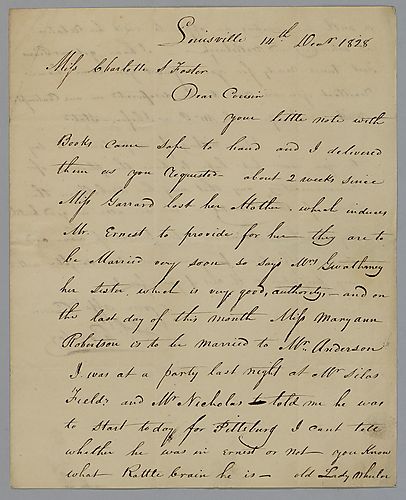 Louisville 14th Decr 1828
Miss Charlotte S Foster
Dear Cousin
Your little note with
Books came safe to hand and I delivered
them as you requested about 2 weeks since
Miss Garrard lost her Mother. which induces
Mr. Ernest to provide for her they are to
be Married very soon so says Mrs Gwathmey
her sister which is very good, authority, - and on
the last day of this month Miss Maryann
Robertson is to be married to Mr Anderson
I was at a party last night at Mr Silas
Fields, and Mr Nicholas told me he was
to Start today for Pittsburg I cant tell
whether he was in Ernest or Not - you Know
what Rattle brain he is - old Lady Wheeler